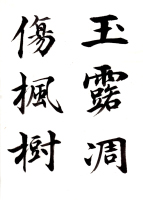 玉露凋
傷楓樹